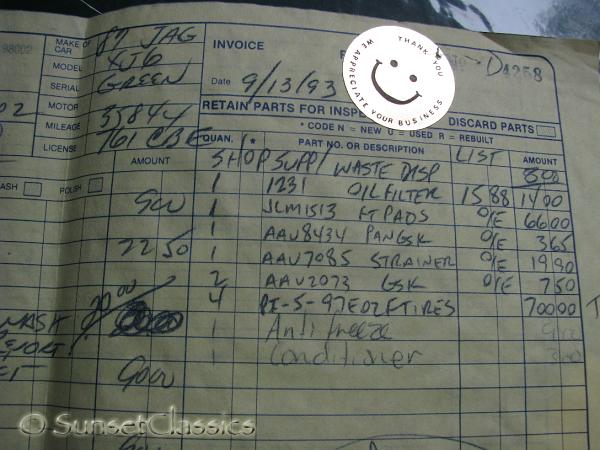 98002
MAKE OF CAR 87 JAG
MODEL XJ6
SERIAL GREEN
MOTOR
MILEAGE 35844
LICENSE 161 CBE
INVOICE
D4258
Date 9/13/93
THANK YOU
WE APPRECIATE YOUR BUSINESS
RETAIN PARTS FOR INSPE DISCARD PARTS
* CODE N = NEW U = USED R = REBUILT
AMOUNT QUAN. * PART NO. OR DESCRIPTION LIST AMOUNT
SHOP SUPP/ WASTE DISP 300
ASH POLISH
1 1231 OIL FILTER 15 88 14 00
900 1 JLM1513 FT PADS O/E 66 00
1 AAU8434 PAN GSK O/E 3 65
22 50 1 AAU7085 STRAINER O/E 19 80
2 AAU2073 GSK O/E 7 50
20 00 4 PI-5-97EOZF TIRES 700 00
WASH 1 Antifreeze
1 Conditioner
9000
© SunsetClassics